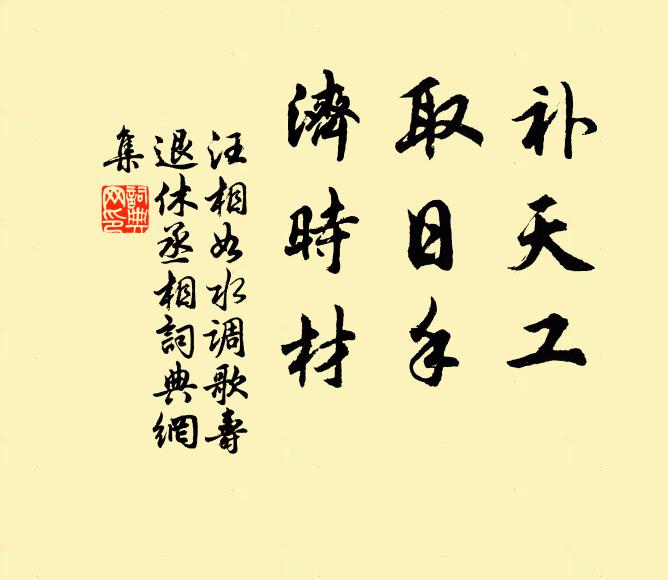 补天工
取日手
濟時材
汪相如水调歌壽
退休丞相詞典網
集
詞典
网印